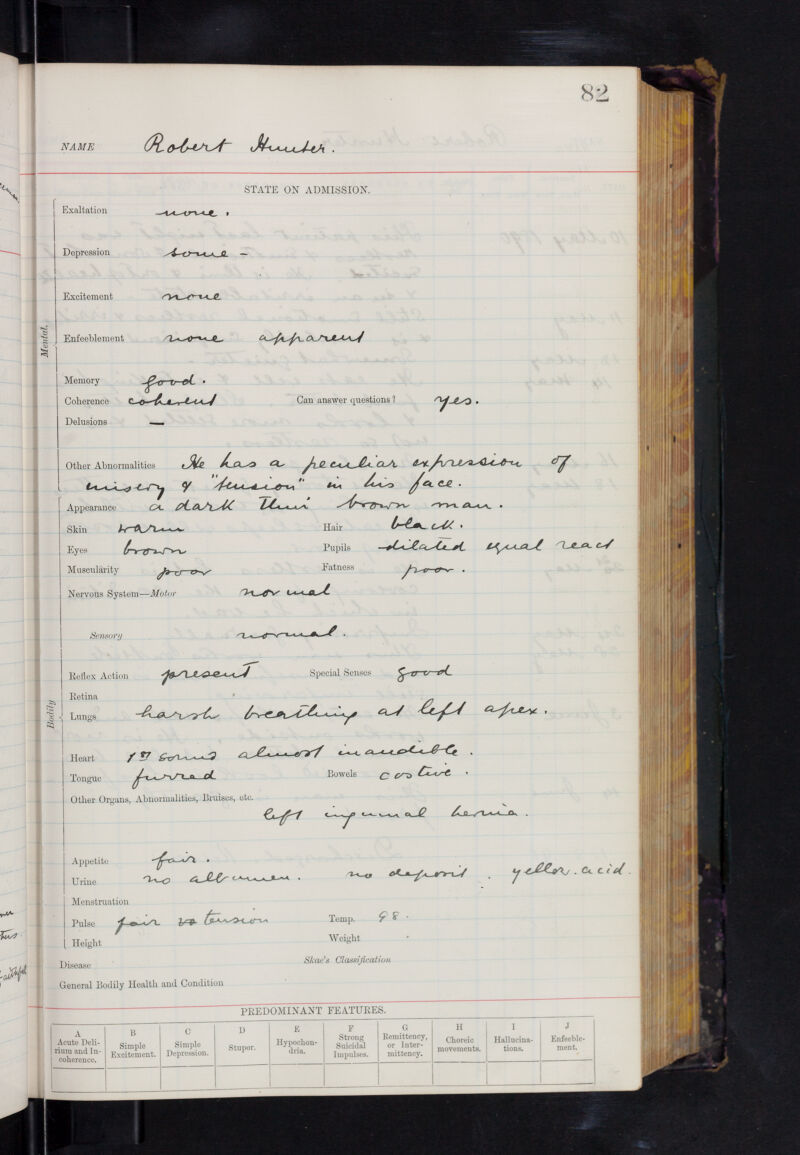 82
NAME Robert Hunter.
STATE ON ADMISSION.
Mental.
Exaltation none.
Depression some -
Excitement none
Enfeeblement none apparent
Memory good.
Coherence coherent Can answer questions? yes.
Delusions —
Other Abnormalities He has a peculiar expression of
misery & "tension" in his face.
Bodily
Appearance a dark thin brown man.
Skin warm Hair black.
Eyes brown Pupils dilated equal react
Muscularity poor Fatness poor.
Nervous System—Motor normal
Sensory normal.
Reflex Action present Special Senses good
Retina
Lungs harsh breathing at left apex.
Heart 1st sound almost inaudible.
Tongue furred Bowels costive.
Other Organs, Abnormalities, Bruises, etc.
left inguinal hernia.
Appetite fair.
Urine no albumen. no deposit. yellow. acid.
Menstruation
Pulse fair tension Temp. 98.
Height Weight
Disease Skae's Classification
General Bodily Health and Condition
PREDOMINANT FEATURES.
A B C D E F G H I J
Acute Deli- Simple Simple Stupor. Hypochon- Strong Remittency, Choreic Hallucina- Enfeeble-
rium and In- Excitement. Depression. dria. Suicidal or Inter- movements. tions. ment.
coherence. Impulses. mittency.